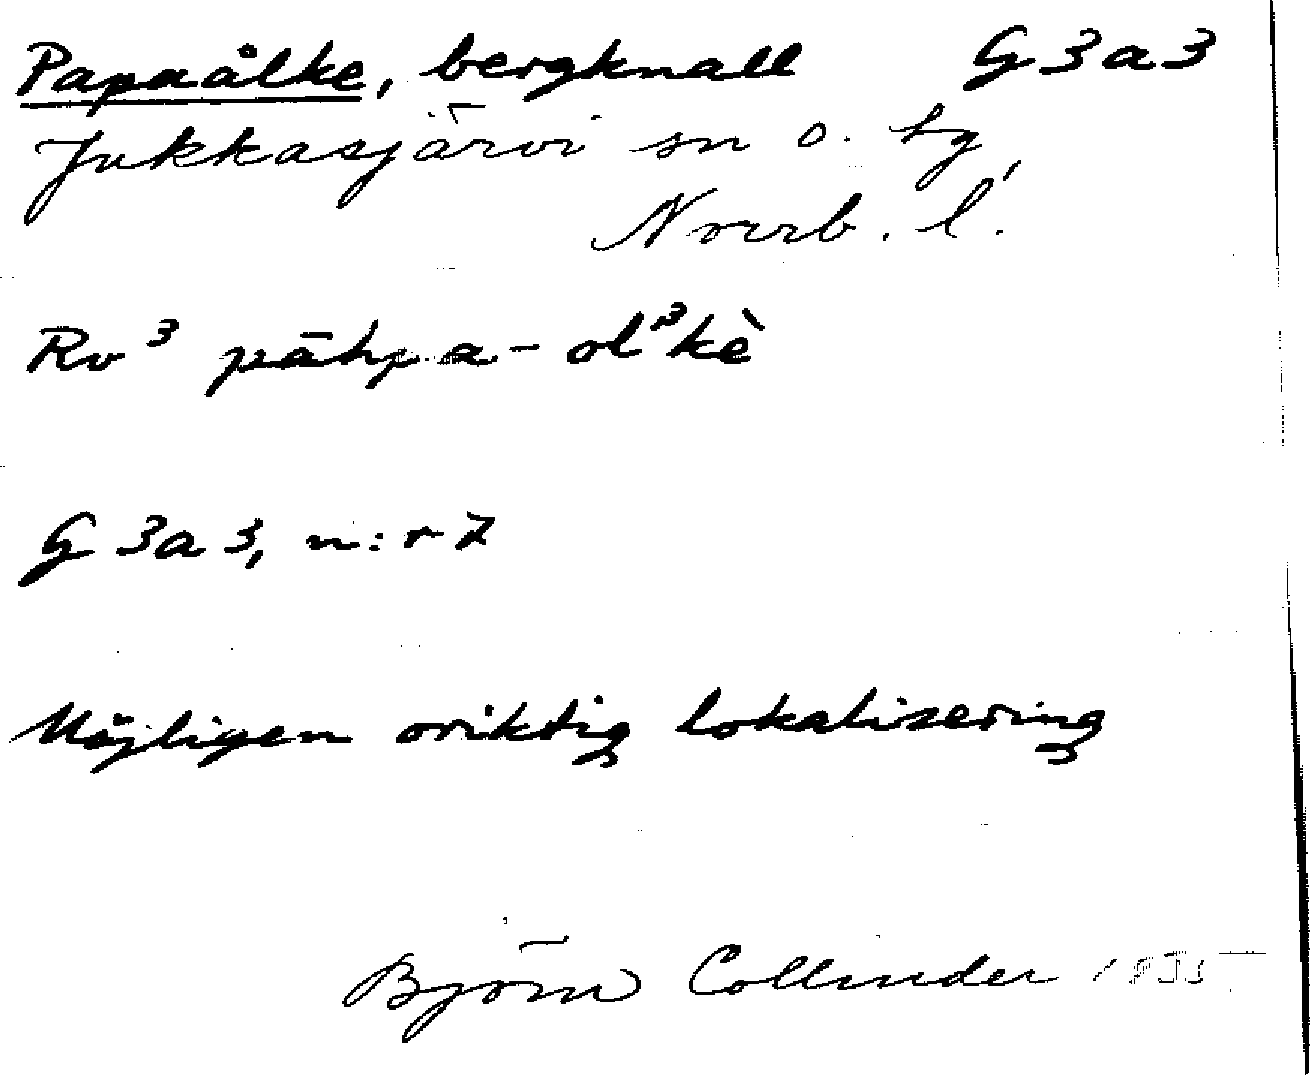 Papaålke, bergknall G3a3
Jukkasjärvi sn o. tg,
Norrb. l.
Rv³ pāhpa-ol³kè
G 3a 3, n:r 7
Möjligen oriktig lokalisering
Björn Collinder 1935